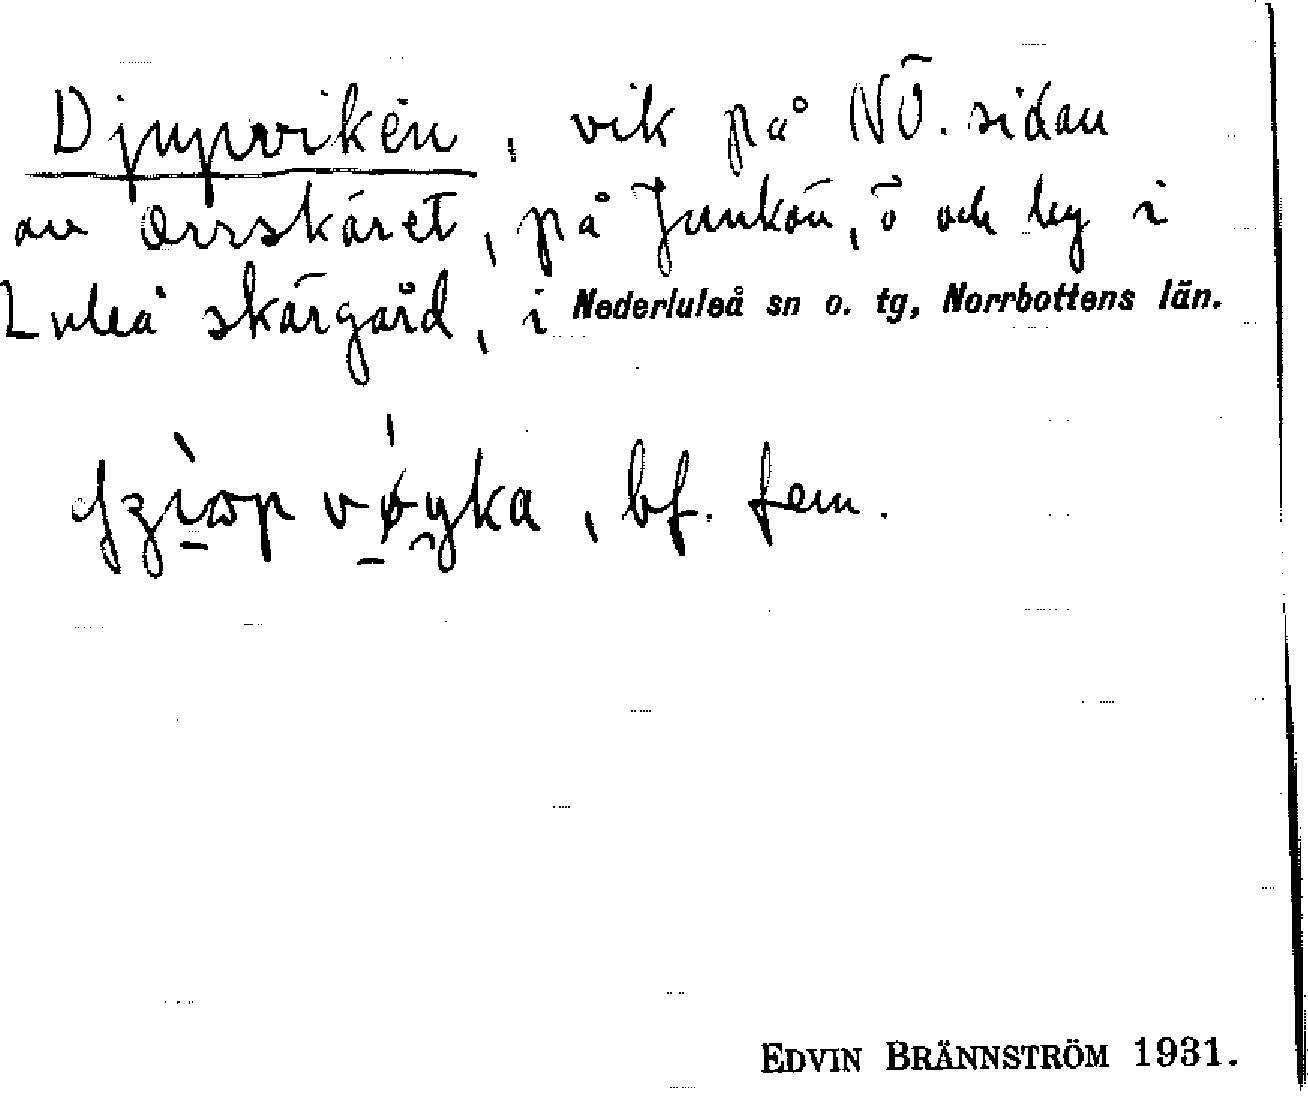 Djupviken, vik på NÖ. sidan
av Orrskäret, på Junkön, ö och by i
Luleå skärgård, i Nederluleå sn o. tg, Norrbottens län.
bf. fem.
EDVIN BRÄNNSTRÖM 1931.